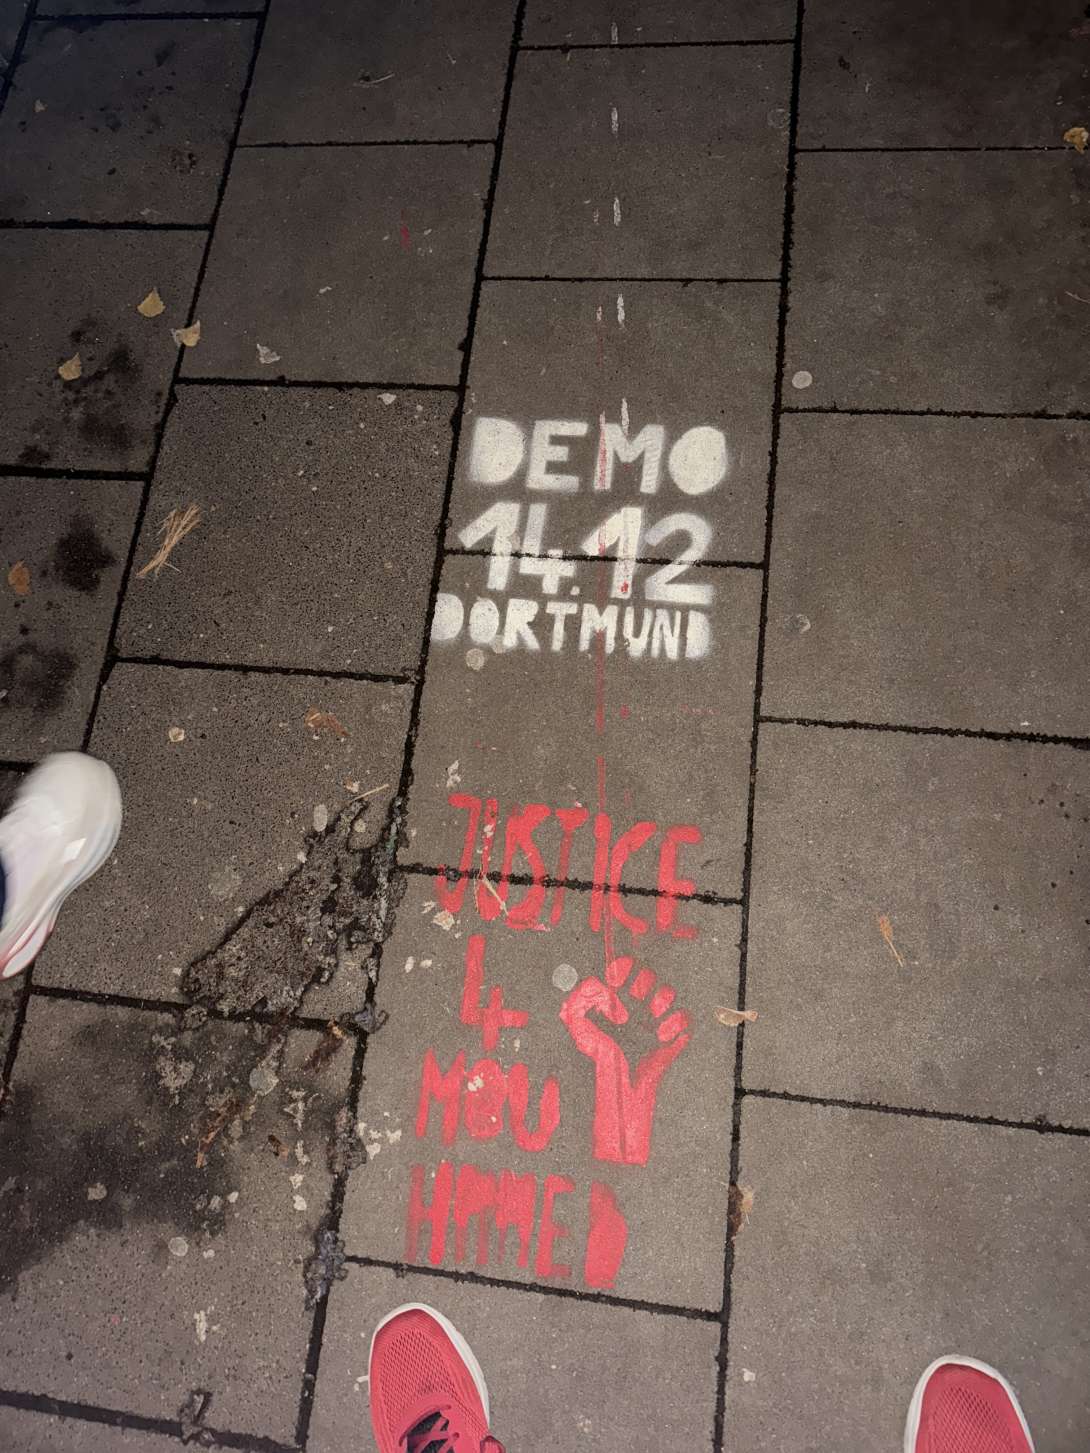 DEMO
14.12
DORTMUND
JUSTICE
4
MOU
HAMED